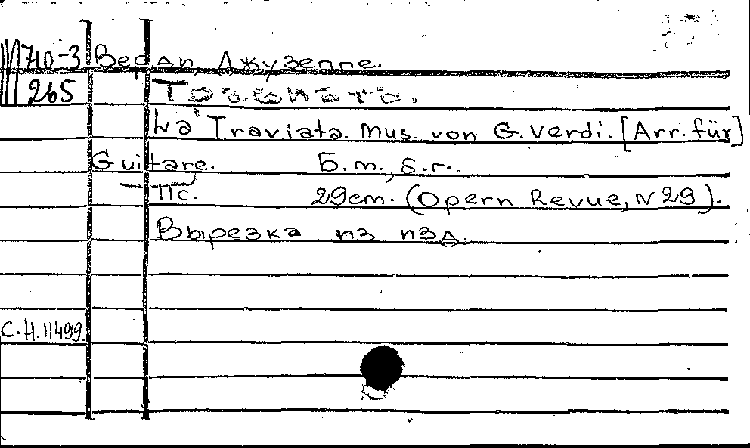 Ш 710-3 Верди, Джузеппе.
265 Травиата.
La Traviata. Mus. von G. Verdi. [Arr. für]
Guitare. Б.m., б.г.
Пс. 29cm. (Opern Revue, N 29).
Вырезка из изд.
С.Н.11499